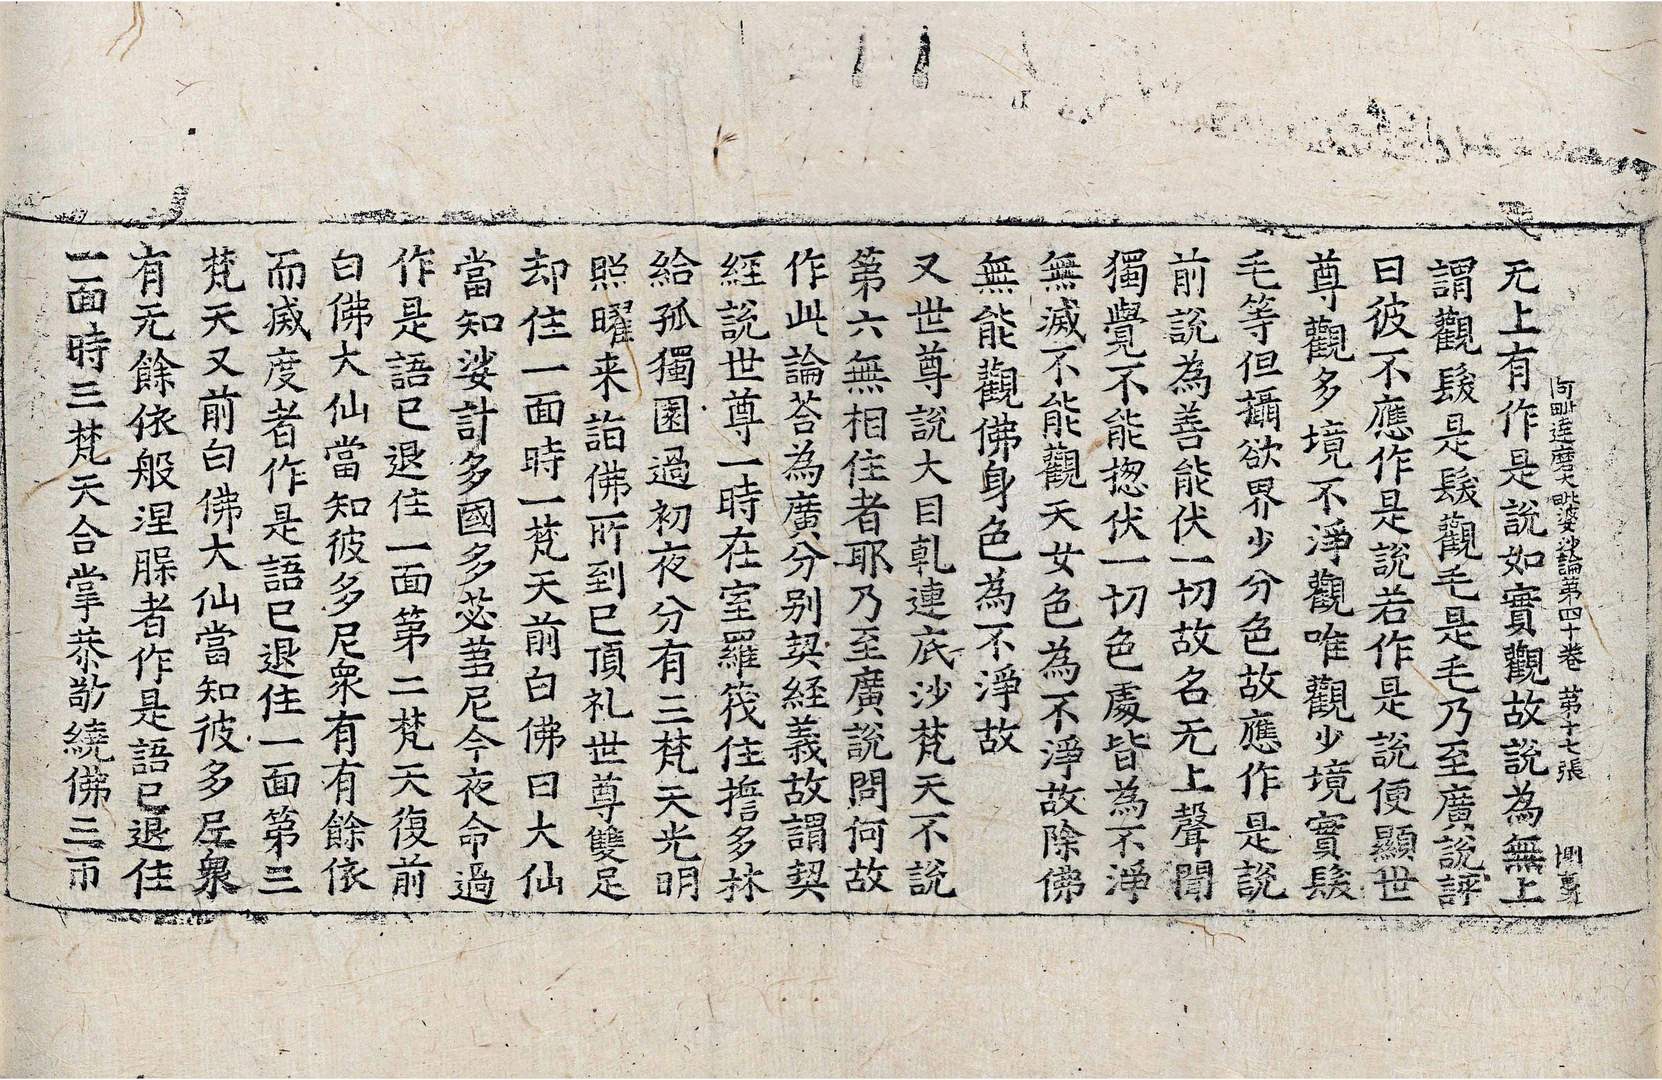 阿毗達磨大毗婆沙論第四十卷 第十七張 惻
无上有作是說如實觀故說為無上
謂觀髮是髮觀毛是毛乃至廣說評
曰彼不應作是說若作是說便顯世
尊觀多境不淨觀唯觀少境實髮
毛等但攝欲界少分色故應作是說
前說為善能伏一切故名无上聲聞
獨覺不能惣伏一切色處皆為不淨
無滅不能觀天女色為不淨故除佛
無能觀佛身色為不淨故
又世尊說大目乹連底沙梵天不說
第六無相住者耶乃至廣說問何故
作此論荅為廣分别契経義故謂契
經說世尊一時在室羅筏住擔多林
給孤獨園過初夜分有三梵天光明
照曜来詣佛所到已頂礼世尊雙足
却住一面時一梵天前白佛曰大仙
當知娑計多國多苾蒭尼今夜命過
作是語已退住一面第二梵天復前
白佛大仙當知彼多尼衆有有餘依
而滅度者作是語已退住一面第三
梵天又前白佛大仙當知彼多尼衆
有无餘依般涅槃者作是語已退住
一面時三梵天合掌恭敬繞佛三帀